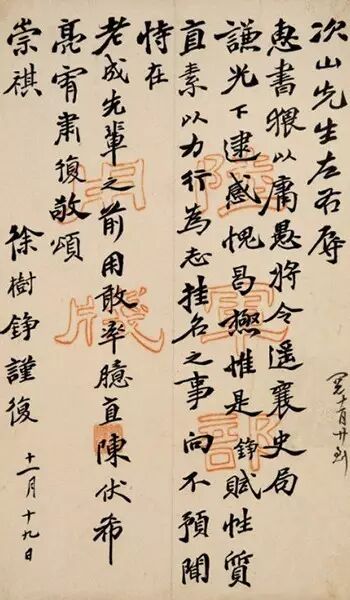 次山先生左右辱
惠書猥以庸愚將令遥襄史局
謙光下逮感愧曷極惟是錚賦性質
直素以力行為志挂名之事向不預聞
恃在
老成先輩之前用敢率臆直陳伏希
亮宥肅復敬頌
崇祺　徐樹錚謹復　十一月十九日
陸軍部
用牋